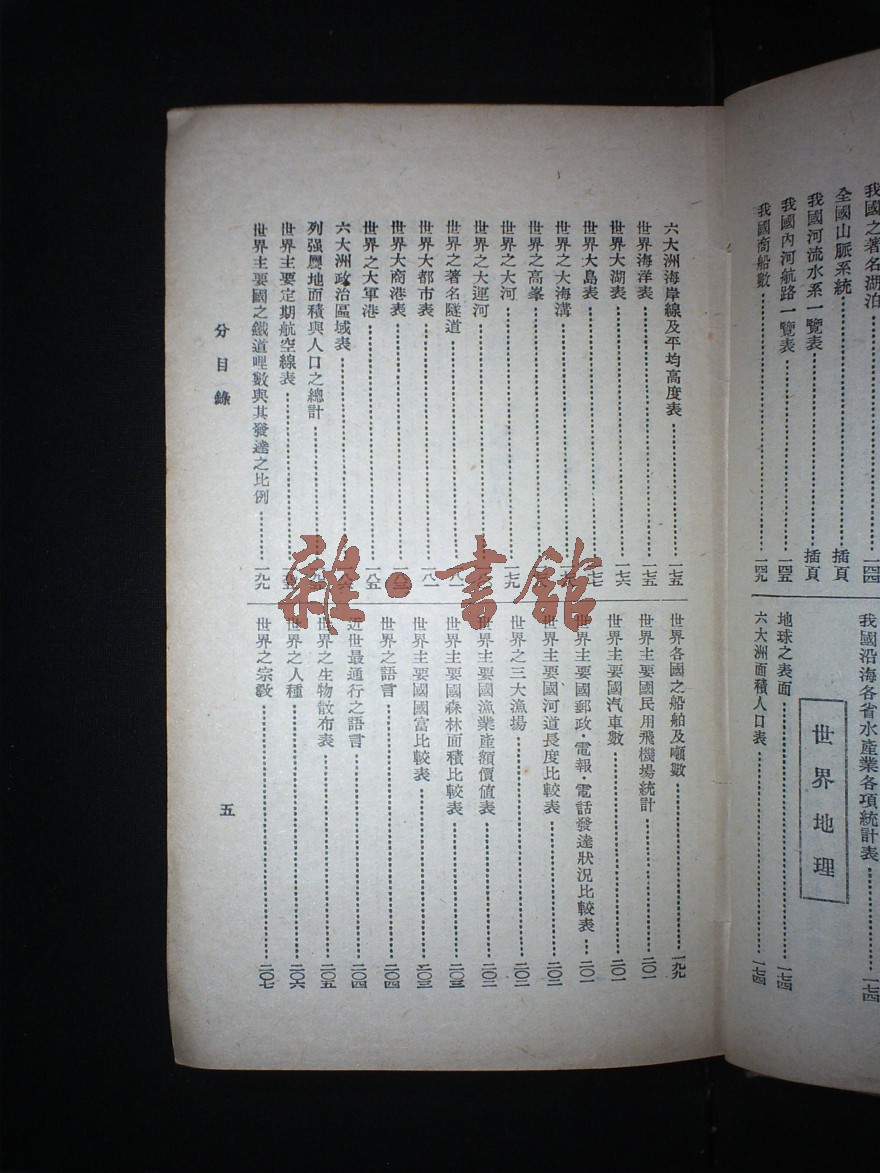 我國之著名湖泊……一四四
全國山脈系統……插頁
我國河流水系一覽表……插頁
我國內河航路一覽表……一四五
我國商船數……一四九
我國沿海各省水產業各項統計表……一七四
世界地理
地球之表面……一七四
六大洲面積人口表……一七四
六大洲海岸線及平均高度表……一七五
世界海洋表……一七五
世界大湖表……一七六
世界大島表……一七七
世界之大海溝
世界之高峯
世界之大河……一七九
世界之大運河
世界之著名隧道……一八一
世界大都市表……一八一
世界大商港表……一八三
世界之大軍港……一八五
六大洲政治區域表……一八六
列强屬地面積與人口之總計
世界主要定期航空線表
世界主要國之鐵道哩數與其發達之比例……一九九
世界各國之船舶及噸數……一九九
世界主要國民用飛機場統計……二〇一
世界主要國汽車數……二〇一
世界主要國郵政·電報·電話發達狀況比較表……二〇一
世界主要國河道長度比較表……二〇二
世界之三大漁場……二〇二
世界主要國漁業產額價値表……二〇二
世界主要國森林面積比較表……二〇三
世界主要國國富比較表……二〇三
世界之語言……二〇四
近世最通行之語言……二〇四
世界之生物散布表……二〇五
世界之人種……二〇六
世界之宗敎……二〇七
分目錄
五
雜·書館